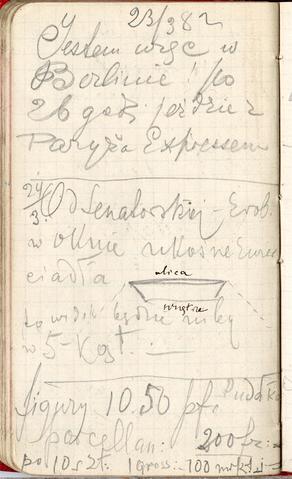 23/3 82
Jestem więc w
Berlinie! po
26 godz jeździe z
Paryża Expressem
24/3. Od Senatorskiej - zrob.
w oknie ukośne zwier
ciadła
ulica
wnętrze
to widok będzie niby
w 5-kąt.
figury 10.50 pf.
Porcellan: 200 fr:
po 10 szt: 1 gross: - 100 mrk